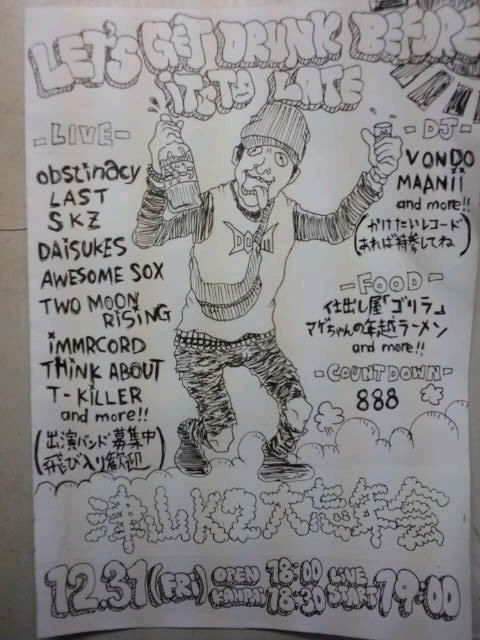 LET'S GET DRUNK BEFORE
iT TO LATE
-LIVE-
obstinacy
LAST
SKZ
DAiSUKES
AWESOME SOX
TWO MOON
RiSiNG
iMMRCORD
THiNK ABOUT
T-KiLLER
and more!!
(出演バンド募集中
飛び入り歓迎)
-DJ-
VONDO
MAANii
and more!!
(かけたいレコード
あれば持参してね)
-FOOD-
仕出し屋「ゴリラ」
マゲちゃんの年越ラーメン
and more!!
-COUNTDOWN-
888
津山K2大忘年会
12.31(FRi) OPEN 18:00 LiVE START 19:00
KANPAi 18:30